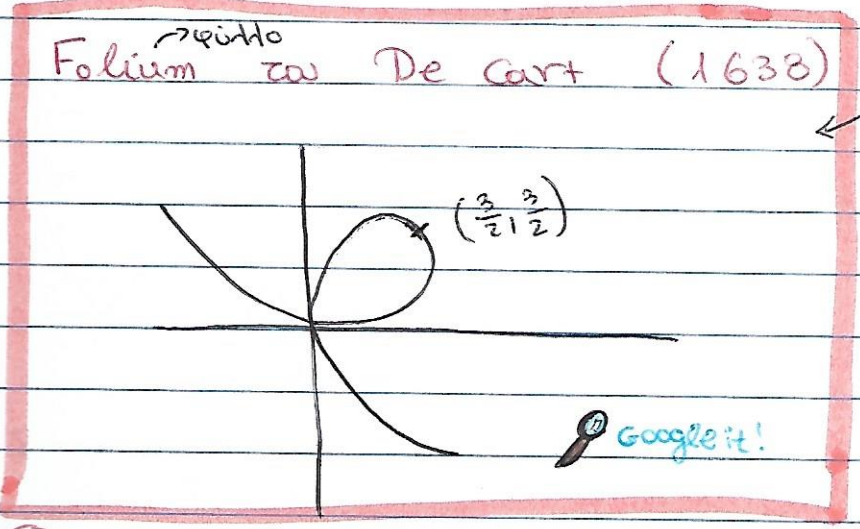 →φύλλο
Folium του De Cart (1638)
(3/2, 3/2)
Google it!